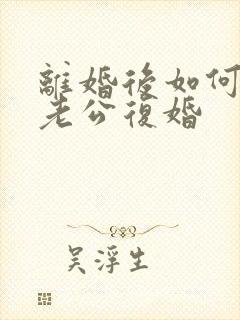 離婚後如何
老公復婚
吳浮生